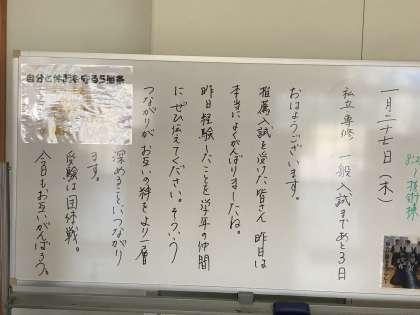 一月二十七日(木)
私立専修 一般入試まであと3日
おはようございます。
推薦入試を受けた皆さん 昨日は
本当によくがんばりましたね。
昨日経験したことを学年の仲間
にぜひ伝えてください。そういう
つながりがお互いの絆をより一層
深めることにつながり
ます。
受験は団体戦。
今日もお互いがんばろう。
自分と仲間を守る5箇条